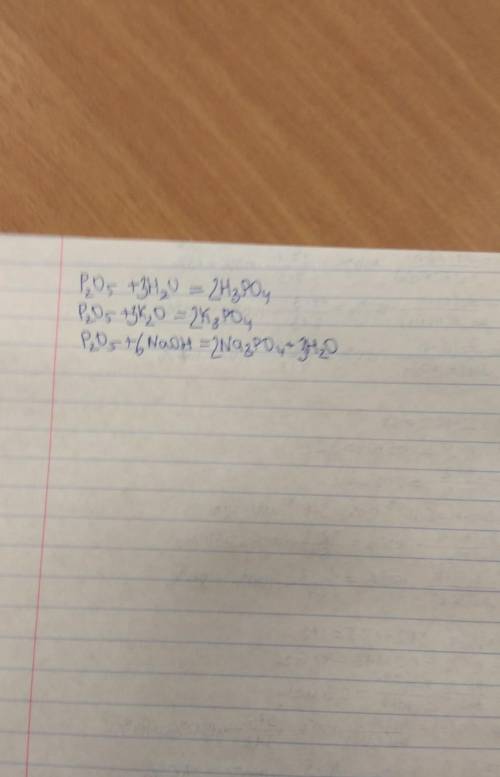 P₂O₅ +3H₂O = 2H₃PO₄
P₂O₅ +3K₂O = 2K₃PO₄
P₂O₅ +6NaOH = 2Na₃PO₄ + 3H₂O